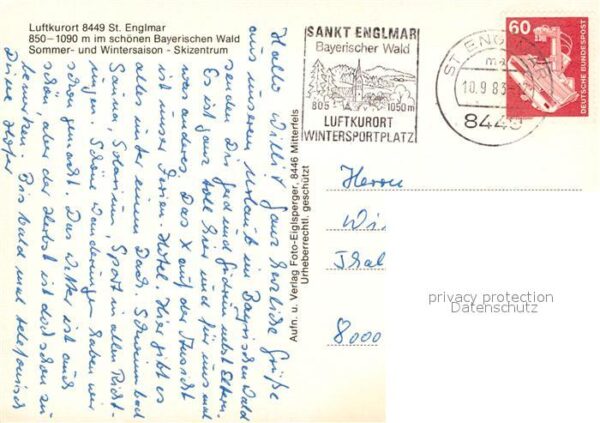 Luftkurort 8449 St. Englmar
850–1090 m im schönen Bayerischen Wald
Sommer- und Wintersaison - Skizentrum
Hallo Willi! Ganz herzliche Grüße
aus unserem Urlaub in Bayrischen Wald
senden Dir und Eltern.
Es ist ganz toll hier und für uns mal
was anderes. Das X auf der Ansicht
ist unser Ferien-Hotel. Hier gibt es
alles unter einem Dach. Schwimmbad
Sauna, Solarium, Sport in allen Richt-
ungen. Schöne Wanderungen haben wir
schon gemacht. Das Wetter ist auch
schön, aber der Herbst ist doch schon zu
bemerken. Bis bald mal telefonisch
Deine
Aufn. u. Verlag Foto-Eiglsperger, 8446 Mitterfels
Urheberrechtl. geschützt
SANKT ENGLMAR
Bayerischer Wald
805 1050m
LUFTKURORT
WINTERSPORTPLATZ
ST. ENGLMAR
10.9.83
8449
60
DEUTSCHE BUNDESPOST
Herrn
Wi
Thal
8000
privacy protection
Datenschutz